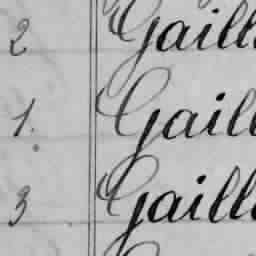 2 Gaill
1. Gaill
3 Gaill